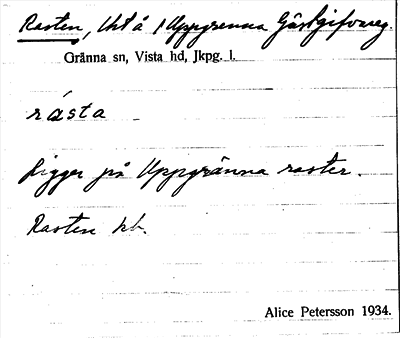 Rasten, Uht å 1 Uppgrenna Gästgifvareg.
Gränna sn, Vista hd, Jkpg. l.
rásta
Ligger på Uppgränna raster.
Rasten hb.
Alice Petersson 1934.